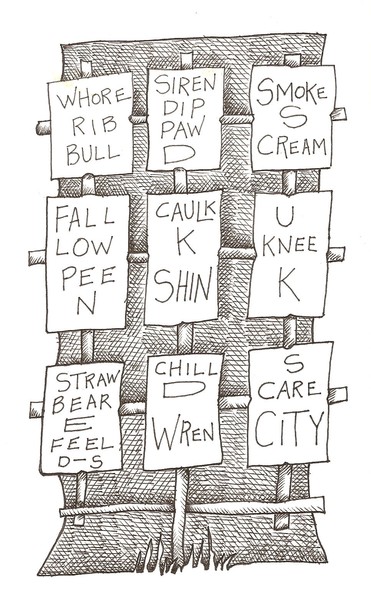 WHORE
RIB
BULL
SIREN
DIP
PAW
D
SMOKE
S
CREAM
FALL
LOW
PEE
N
CAULK
K
SHIN
U
KNEE
K
STRAW
BEAR
E
FEEL
D-S
CHILL
D
WREN
S
CARE
CITY